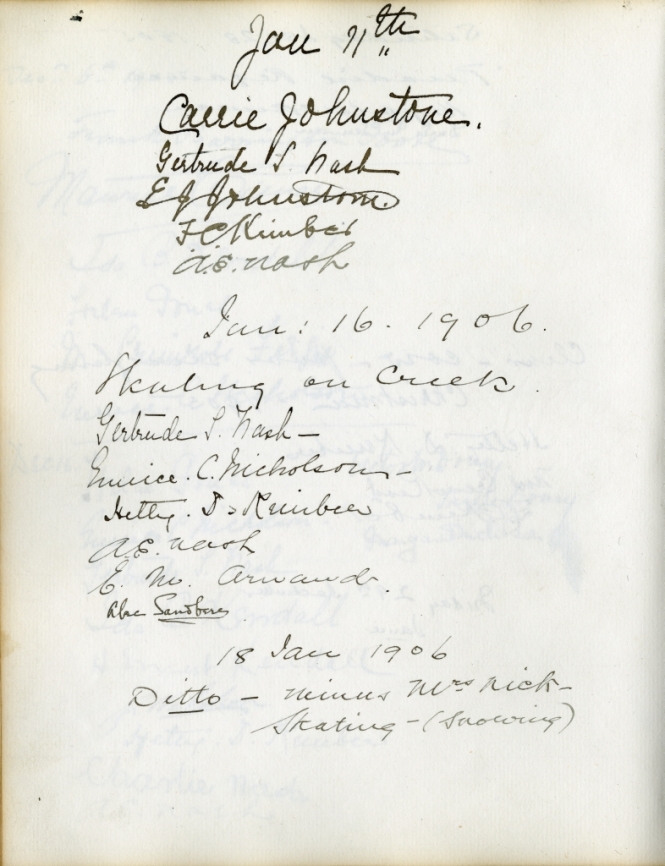 Jan 11th
Carrie Johnstone.
Gertrude S. Nash
E J Johnstone.
F C Kimber
A.E. Nash
Jan: 16. 1906.
Skating on Creek.
Gertrude S. Nash —
Eunice. C. Nicholson —
Hetty. D. Kimber
A.E. Nash
E. M. Armand.
18 Jan 1906
Ditto — minus Mrs Nick —
Skating — (Snowing)